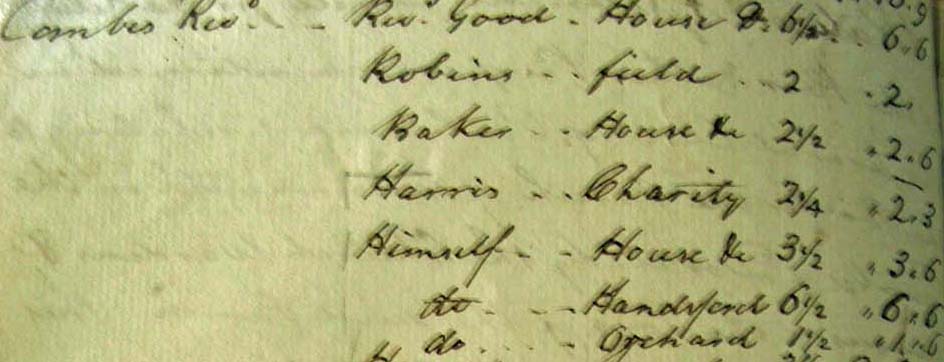 Combes Revd. - - Revd. Good - House &c 6 1/2 - - 6 " 6
Robins - - field - - 2 " 2 "
Baker - - House &c 2 1/2 " 2 " 6
Harris - - Charity 2 1/4 " 2 " 3
Himself - - House &c 3 1/2 " 3 " 6
do - - Handsford 6 1/2 " 6 " 6
do - - - Orchard 1 1/2 " 1 " 6